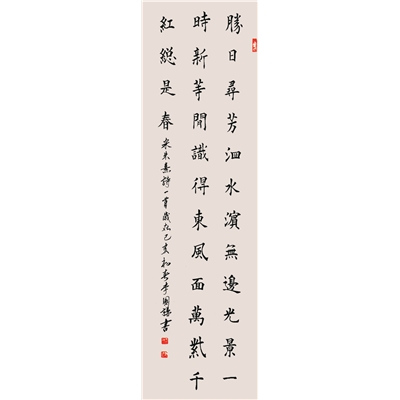 勝日尋芳泗水濱無邊光景一
時新等閒識得東風面萬紫千
紅總是春 宋朱熹詩一首歲在己亥初春李國書